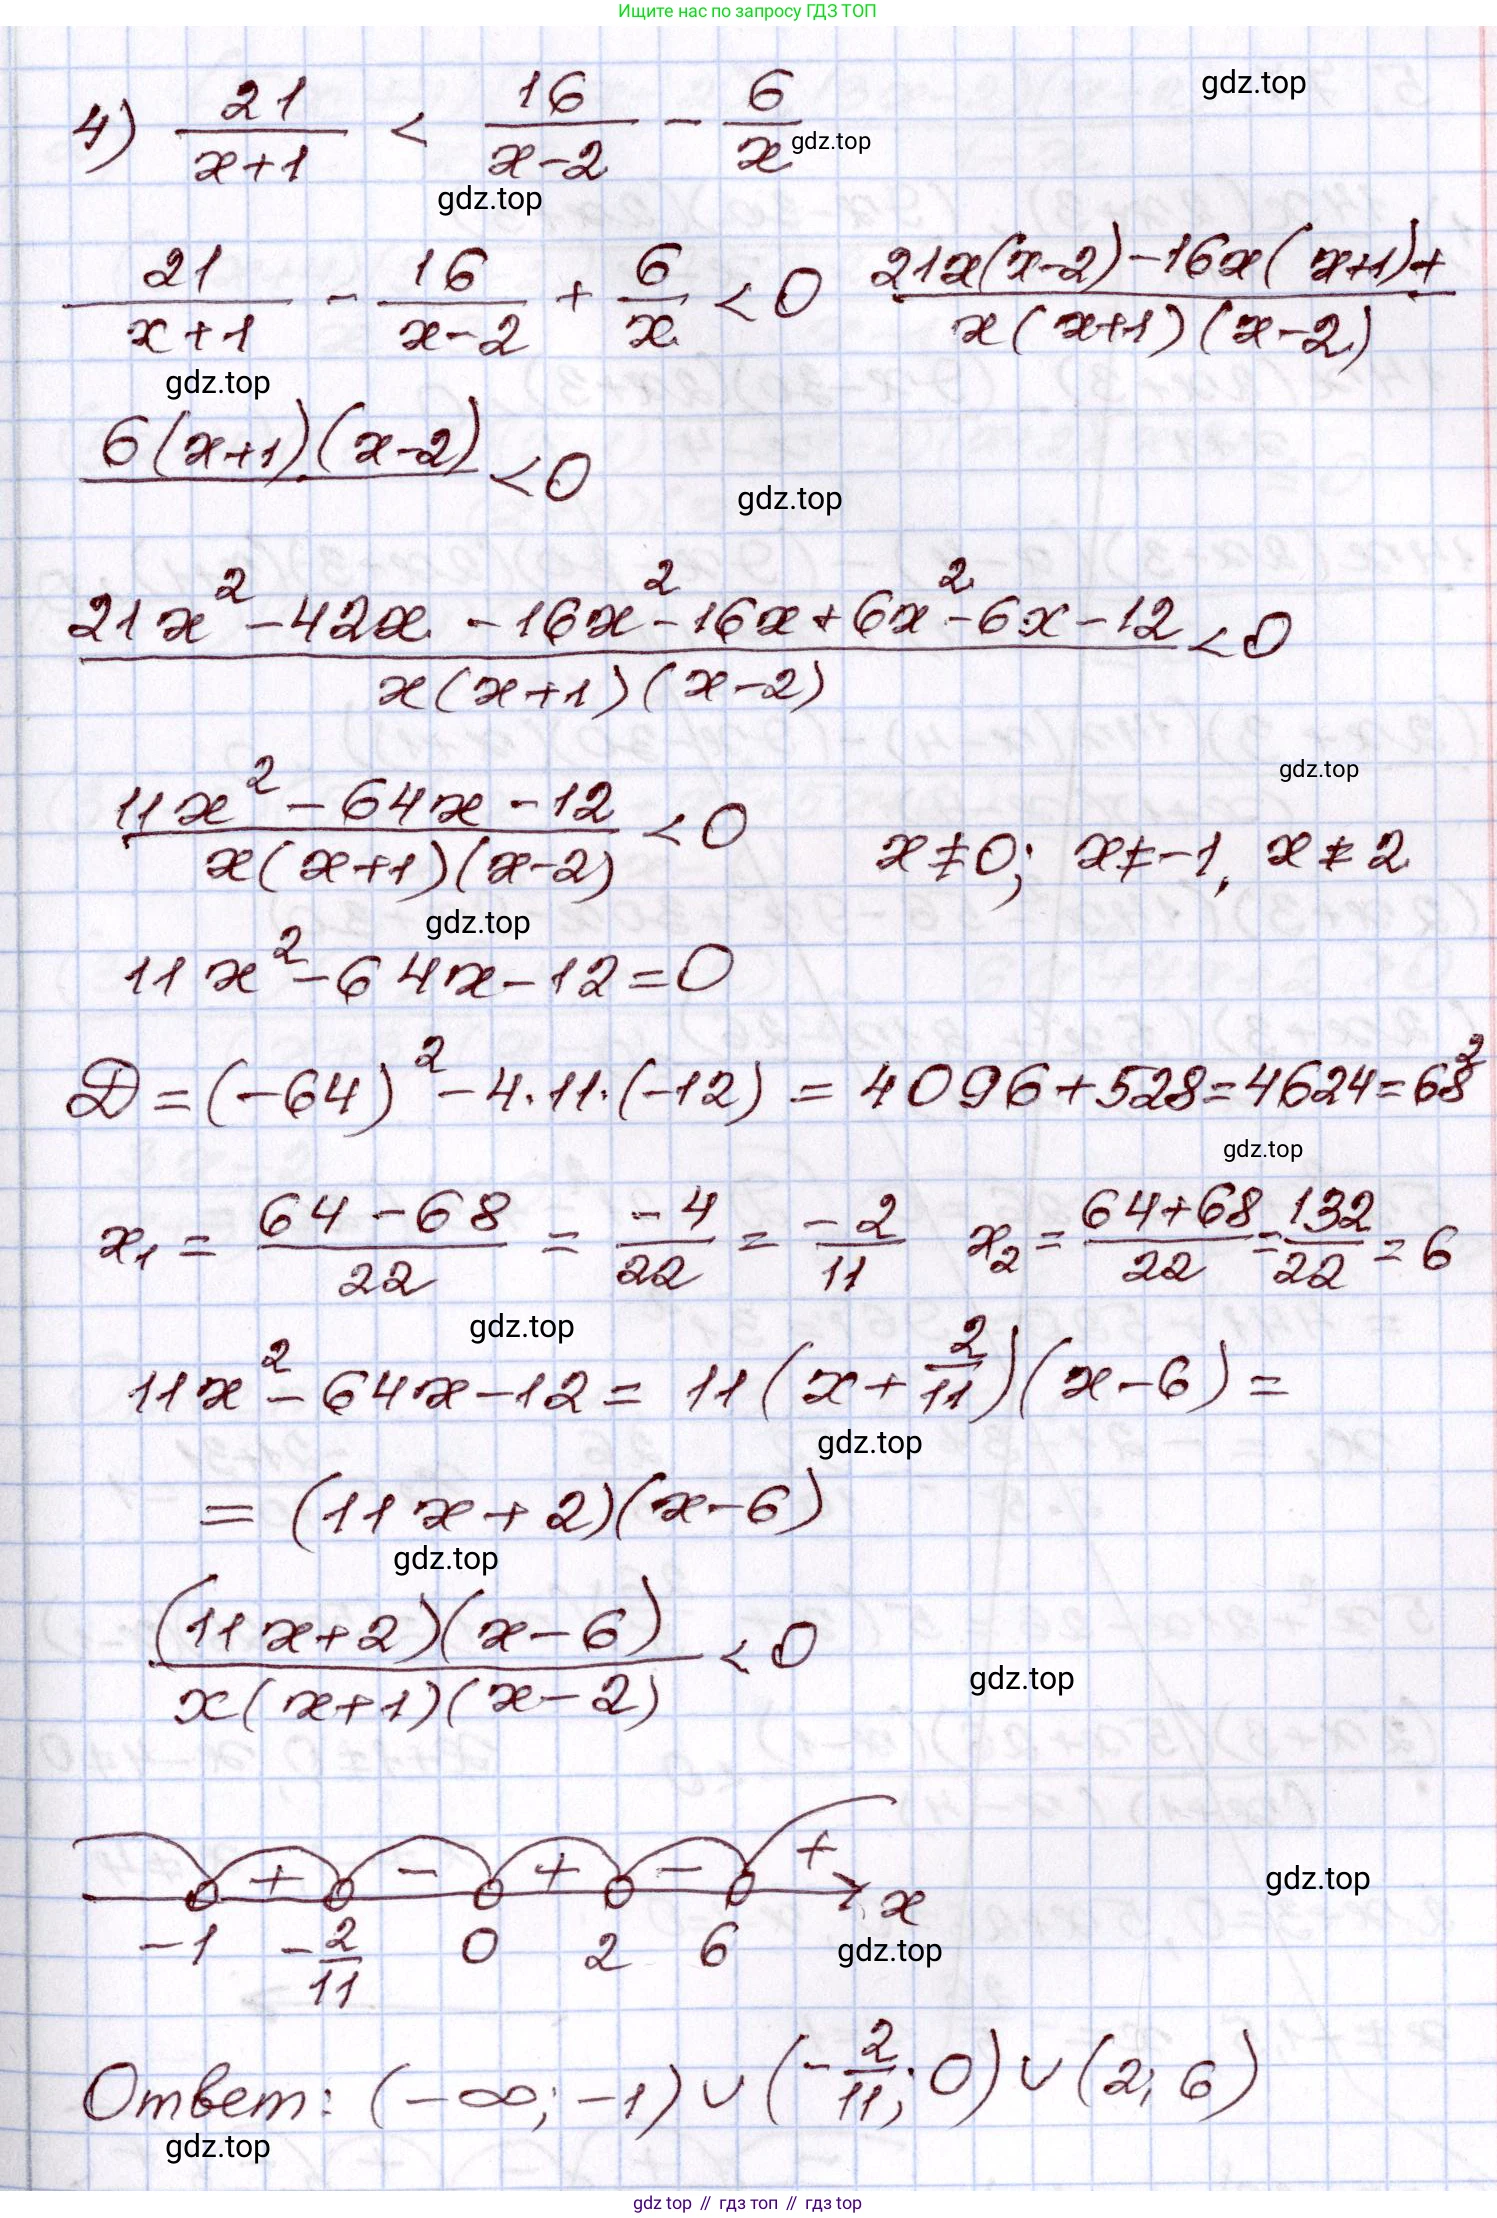 Ищите нас по запросу ГДЗ ТОП
4) 21/(x+1) < 16/(x-2) - 6/x
gdz.top
gdz.top
gdz.top
21/(x+1) - 16/(x-2) + 6/x < 0 (21x(x-2)-16x(x+1)+)/(x(x+1)(x-2))
gdz.top
6(x+1)(x-2) < 0
gdz.top
(21x² - 42x - 16x² - 16x + 6x² - 6x - 12)/(x(x+1)(x-2)) < 0
gdz.top
(11x² - 64x - 12)/(x(x+1)(x-2)) < 0 x≠0; x≠-1, x≠2
gdz.top
11x² - 64x - 12 = 0
D = (-64)² - 4·11·(-12) = 4096 + 528 = 4624 = 68²
gdz.top
x₁ = (64-68)/22 = -4/22 = -2/11 x₂ = (64+68)/22 = 132/22 = 6
gdz.top
11x² - 64x - 12 = 11(x + 2/11)(x-6) =
gdz.top
= (11x+2)(x-6)
gdz.top
((11x+2)(x-6))/(x(x+1)(x-2)) < 0
gdz.top
+ - + - +
gdz.top
x
-1 -2/11 0 2 6
gdz.top
Ответ: (-∞; -1) ∪ (-2/11; 0) ∪ (2; 6)
gdz.top
gdz top // гдз топ // гдз top